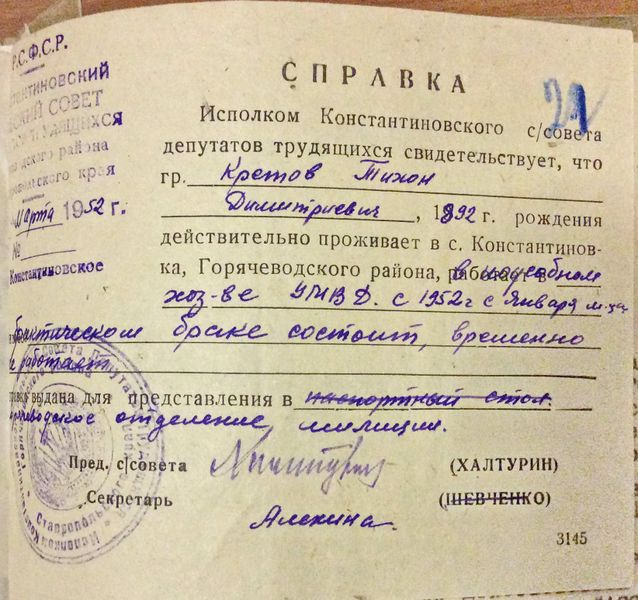 Р.С.Ф.С.Р.
СОВЕТ
района
края
Марта 1952 г.
№
Константиновское
21
СПРАВКА
Исполком Константиновского с/совета
депутатов трудящихся свидетельствует, что
гр. Кретов Тихон
Димитриевич, 1892 г. рождения
действительно проживает в с. Константинов-
ка, Горячеводского района, работает в подсобном
хоз-ве УМВД. с 1952 г с Января м-ца
фактическом браке состоит, временно
работает
выдана для представления в паспортный стол.
отделение, милиции.
Пред. с/совета (ХАЛТУРИН)
Секретарь (ШЕВЧЕНКО)
Алехина.
3145